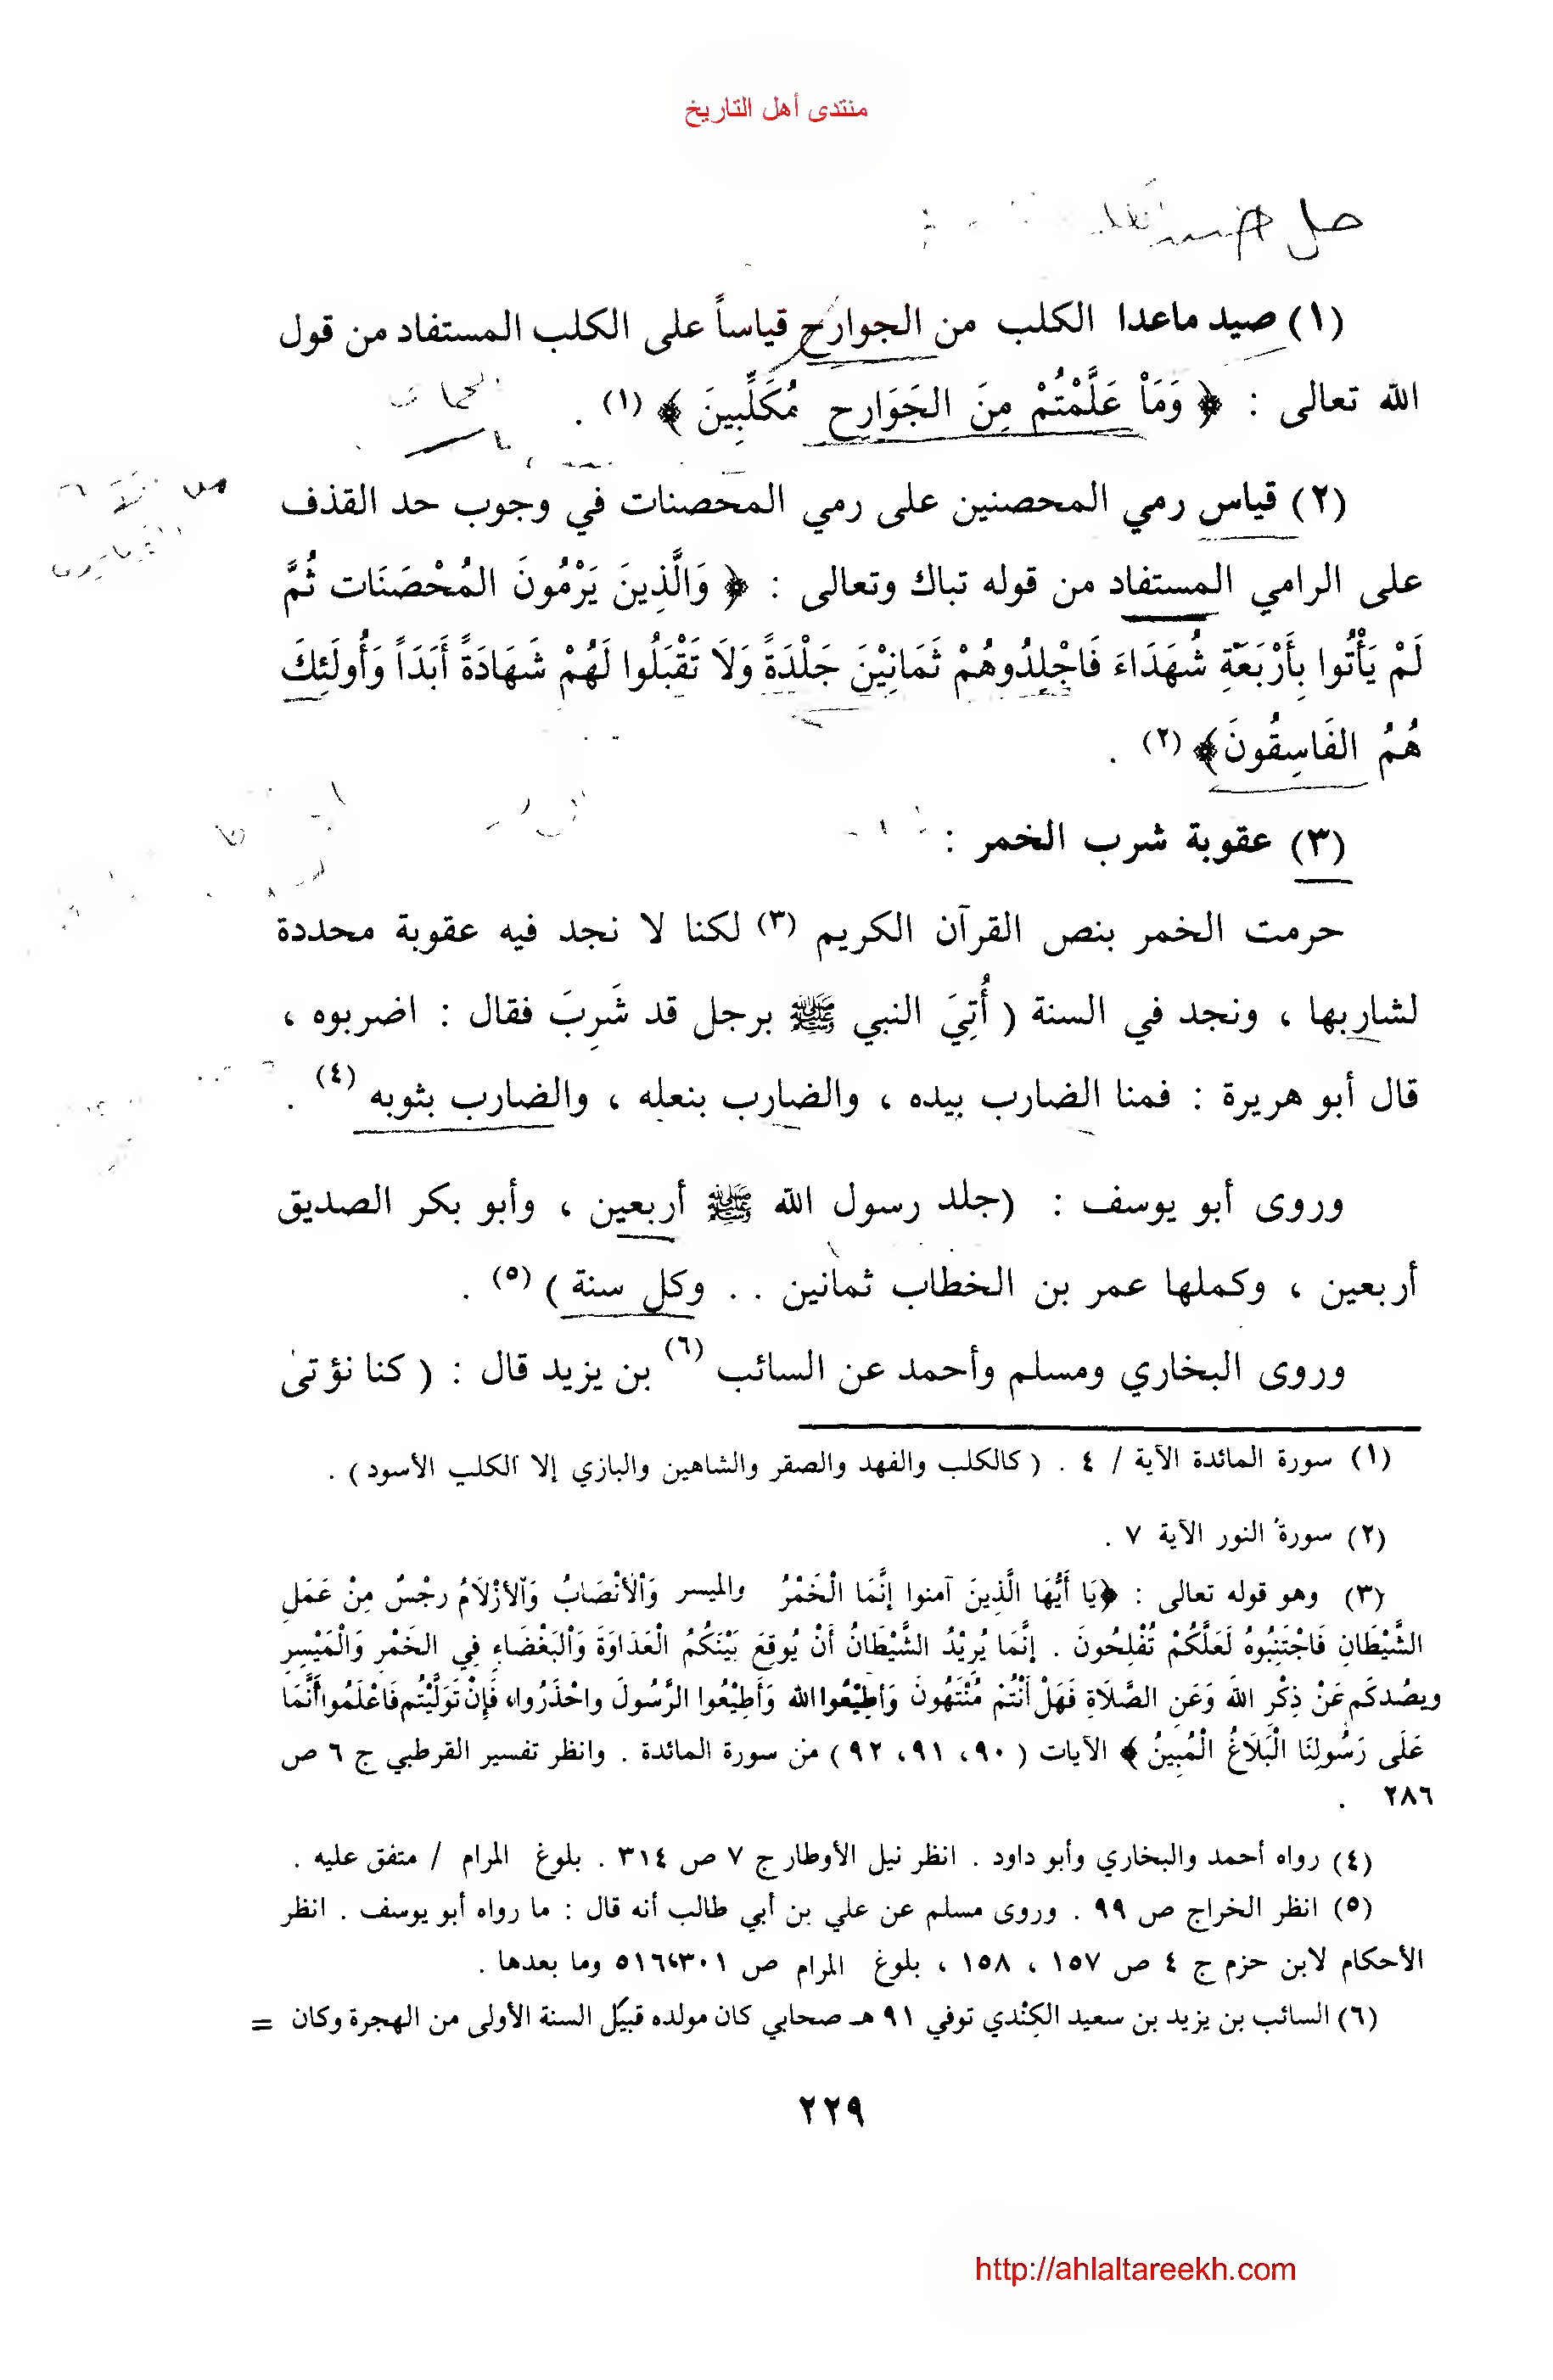 منتدى أهل التاريخ
(١) صيد ماعدا الكلب من الجوارح قياساً على الكلب المستفاد من قول
الله تعالى : ﴿ وَمَاْ عَلَّمْتُمْ مِنَ الجَوَارِحِ مُكَلِّبِينَ ﴾ (١) .
(٢) قياس رمي المحصنين على رمي المحصنات في وجوب حد القذف
على الرامي المستفاد من قوله تباك وتعالى : ﴿ وَالَّذِينَ يَرْمُونَ المُحْصَنَات ثُمَّ
لَمْ يَأْتُوا بِأَرْبَعَةِ شُهَدَاءَ فَاجْلِدُوهُمْ ثَمَانِيْنَ جَلْدَةً وَلَا تَقْبَلُوا لَهُمْ شَهَادَةً أَبَدَاً وَأُولَئِكَ
هُمُ الفَاسِقُونَ﴾ (٢) .
(٣) عقوبة شرب الخمر :
حرمت الخمر بنص القرآن الكريم (٣) لكنا لا نجد فيه عقوبة محددة
لشاربها ، ونجد في السنة ( أُتِيَ النبي ﷺ برجل قد شَرِبَ فقال : اضربوه ،
قال أبو هريرة : فمنا الضارب بيده ، والضارب بنعله ، والضارب بثوبه (٤) .
وروى أبو يوسف : (جلد رسول الله ﷺ أربعين ، وأبو بكر الصديق
أربعين ، وكملها عمر بن الخطاب ثمانين . . وكل سنة ) (٥) .
وروى البخاري ومسلم وأحمد عن السائب (٦) بن يزيد قال : ( كنا نؤتى
(١) سورة المائدة الآية / ٤ . ( كالكلب والفهد والصقر والشاهين والبازي إلا الكلب الأسود ) .
(٢) سورة النور الآية ٧ .
(٣) وهو قوله تعالى : ﴿يَا أَيُّهَا الَّذِينَ آمنوا إِنَّمَا الْخَمْرُ والميسر وَاْلأَنْصَابُ وَاْلأَزْلَامُ رِجْسٌ مِنْ عَمَلِ
الشَّيْطَانِ فَاجْتَنِبُوهُ لَعَلَّكُمْ تُفْلِحُونَ . إِنَّمَا يُرِيْدُ الشَّيْطَانُ أَنْ يُوقِعَ بَيْنَكُمُ الْعَدَاوَةَ وَاْلبَغْضَاءِ فِي الخَمْرِ وَالْمَيْسِرِ
ويصُدكَم عَنْ ذِكْرِ اللهَ وَعَنِ الصَّلَاةِ فَهَلْ أَنْتُمْ مُنْتَهُونَ وَأَطِيْعُوا الله وَأَطِيْعُوا الرَّسُولَ واحْذَرُوا، فَإِنْ تَوَلَّيْتُم فَاعْلَمُوا أَنَّمَا
عَلَى رَسُولِنَا الْبَلَاغُ الْمُبِينُ ﴾ الآيات ( ٩٠، ٩١، ٩٢ ) من سورة المائدة . وانظر تفسير القرطبي ج ٦ ص
٢٨٦ .
(٤) رواه أحمد والبخاري وأبو داود . انظر نيل الأوطار ج ٧ ص ٣١٤ . بلوغ المرام / متفق عليه .
(٥) انظر الخراج ص ٩٩ . وروى مسلم عن علي بن أبي طالب أنه قال : ما رواه أبو يوسف . انظر
الأحكام لابن حزم ج ٤ ص ١٥٧ ، ١٥٨ ، بلوغ المرام ص ٣٠١،٥١٦ وما بعدها .
(٦) السائب بن يزيد بن سعيد الكِنْدي توفي ٩١ هـ صحابي كان مولده قبيَل السنة الأولى من الهجرة وكان =
٢٢٩
http://ahlaltareekh.com